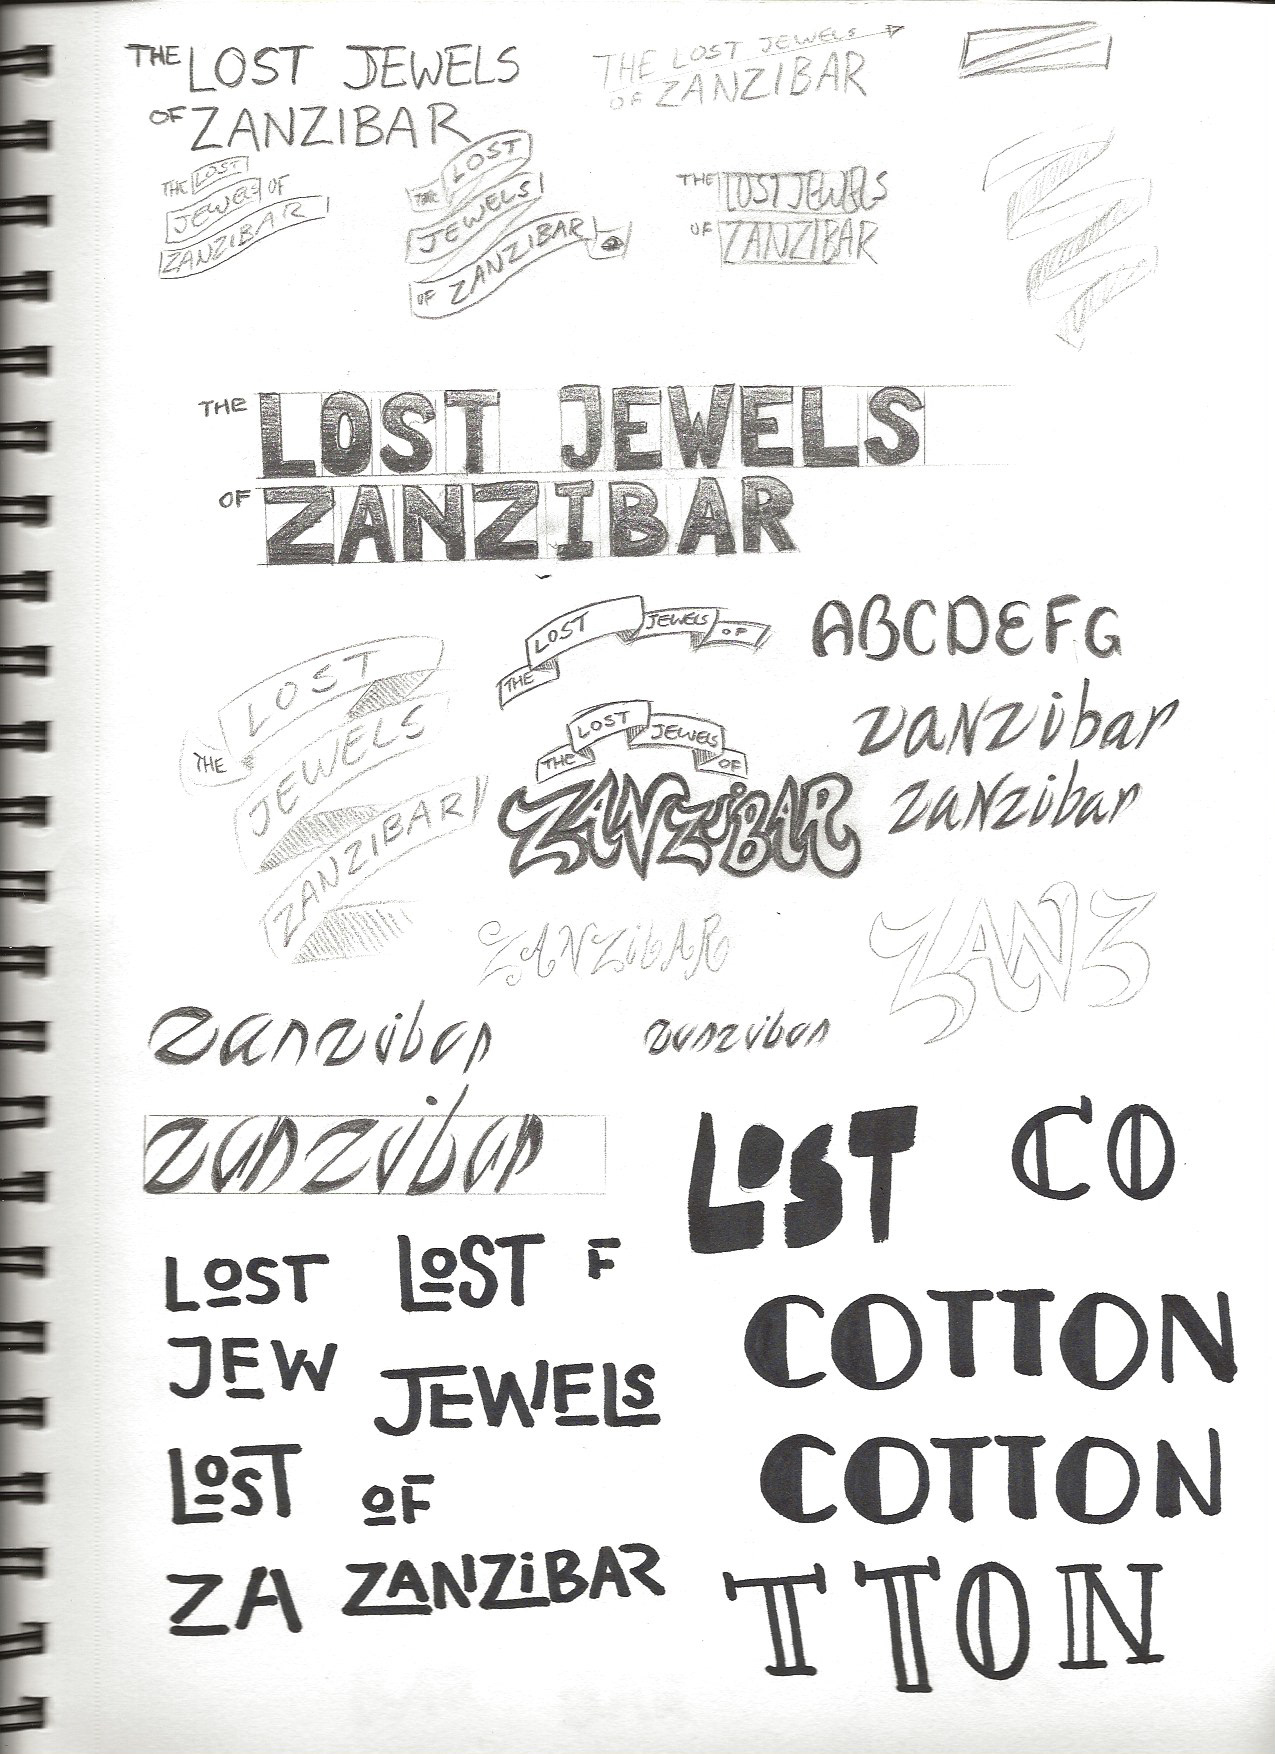 THE LOST JEWELS
OF ZANZIBAR
THE LOST JEWELS
OF ZANZIBAR
THE LOST
JEWELS OF
ZANZIBAR
THE LOST
JEWELS
OF ZANZIBAR
THE LOST JEWELS
OF ZANZIBAR
THE LOST JEWELS
OF ZANZIBAR
THE LOST
JEWELS
ZANZIBAR
THE LOST JEWELS OF
THE LOST JEWELS OF
ZANZiBAR
ABCDEFG
zaNzibar
zaNzibar
ZANZiBAR
ZANZ
zanzibar
zanzibar
zanzibar
LOST
CO
LOST
LOST
F
JEW
JEWELS
LOST
OF
ZA
ZANZiBAR
COTTON
COTTON
T TON